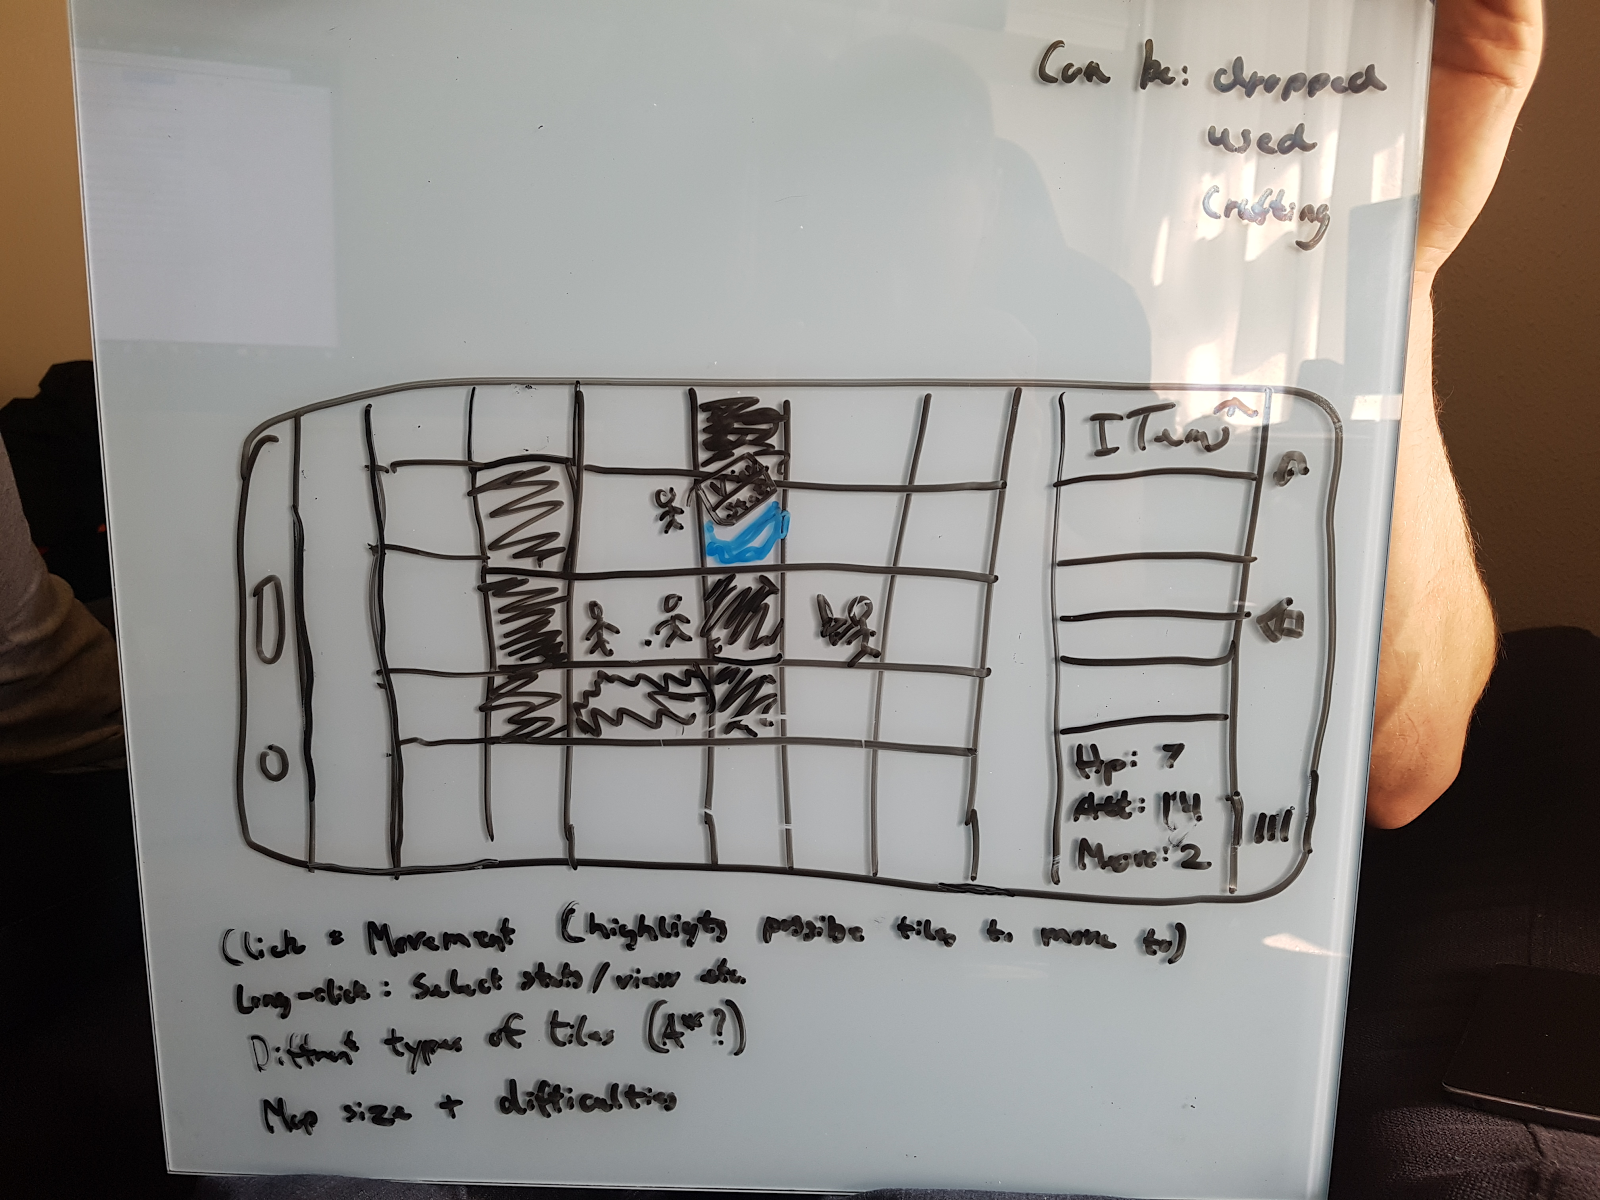 Can be: dropped
used
Crafting
ITems
Hp: 7
Att: 14
Move: 2
Click = Movement (highligts possible tiles to move to)
Long-click: Select stats/view etc.
Diffrent types of tiles (A*?)
Map size + difficulties